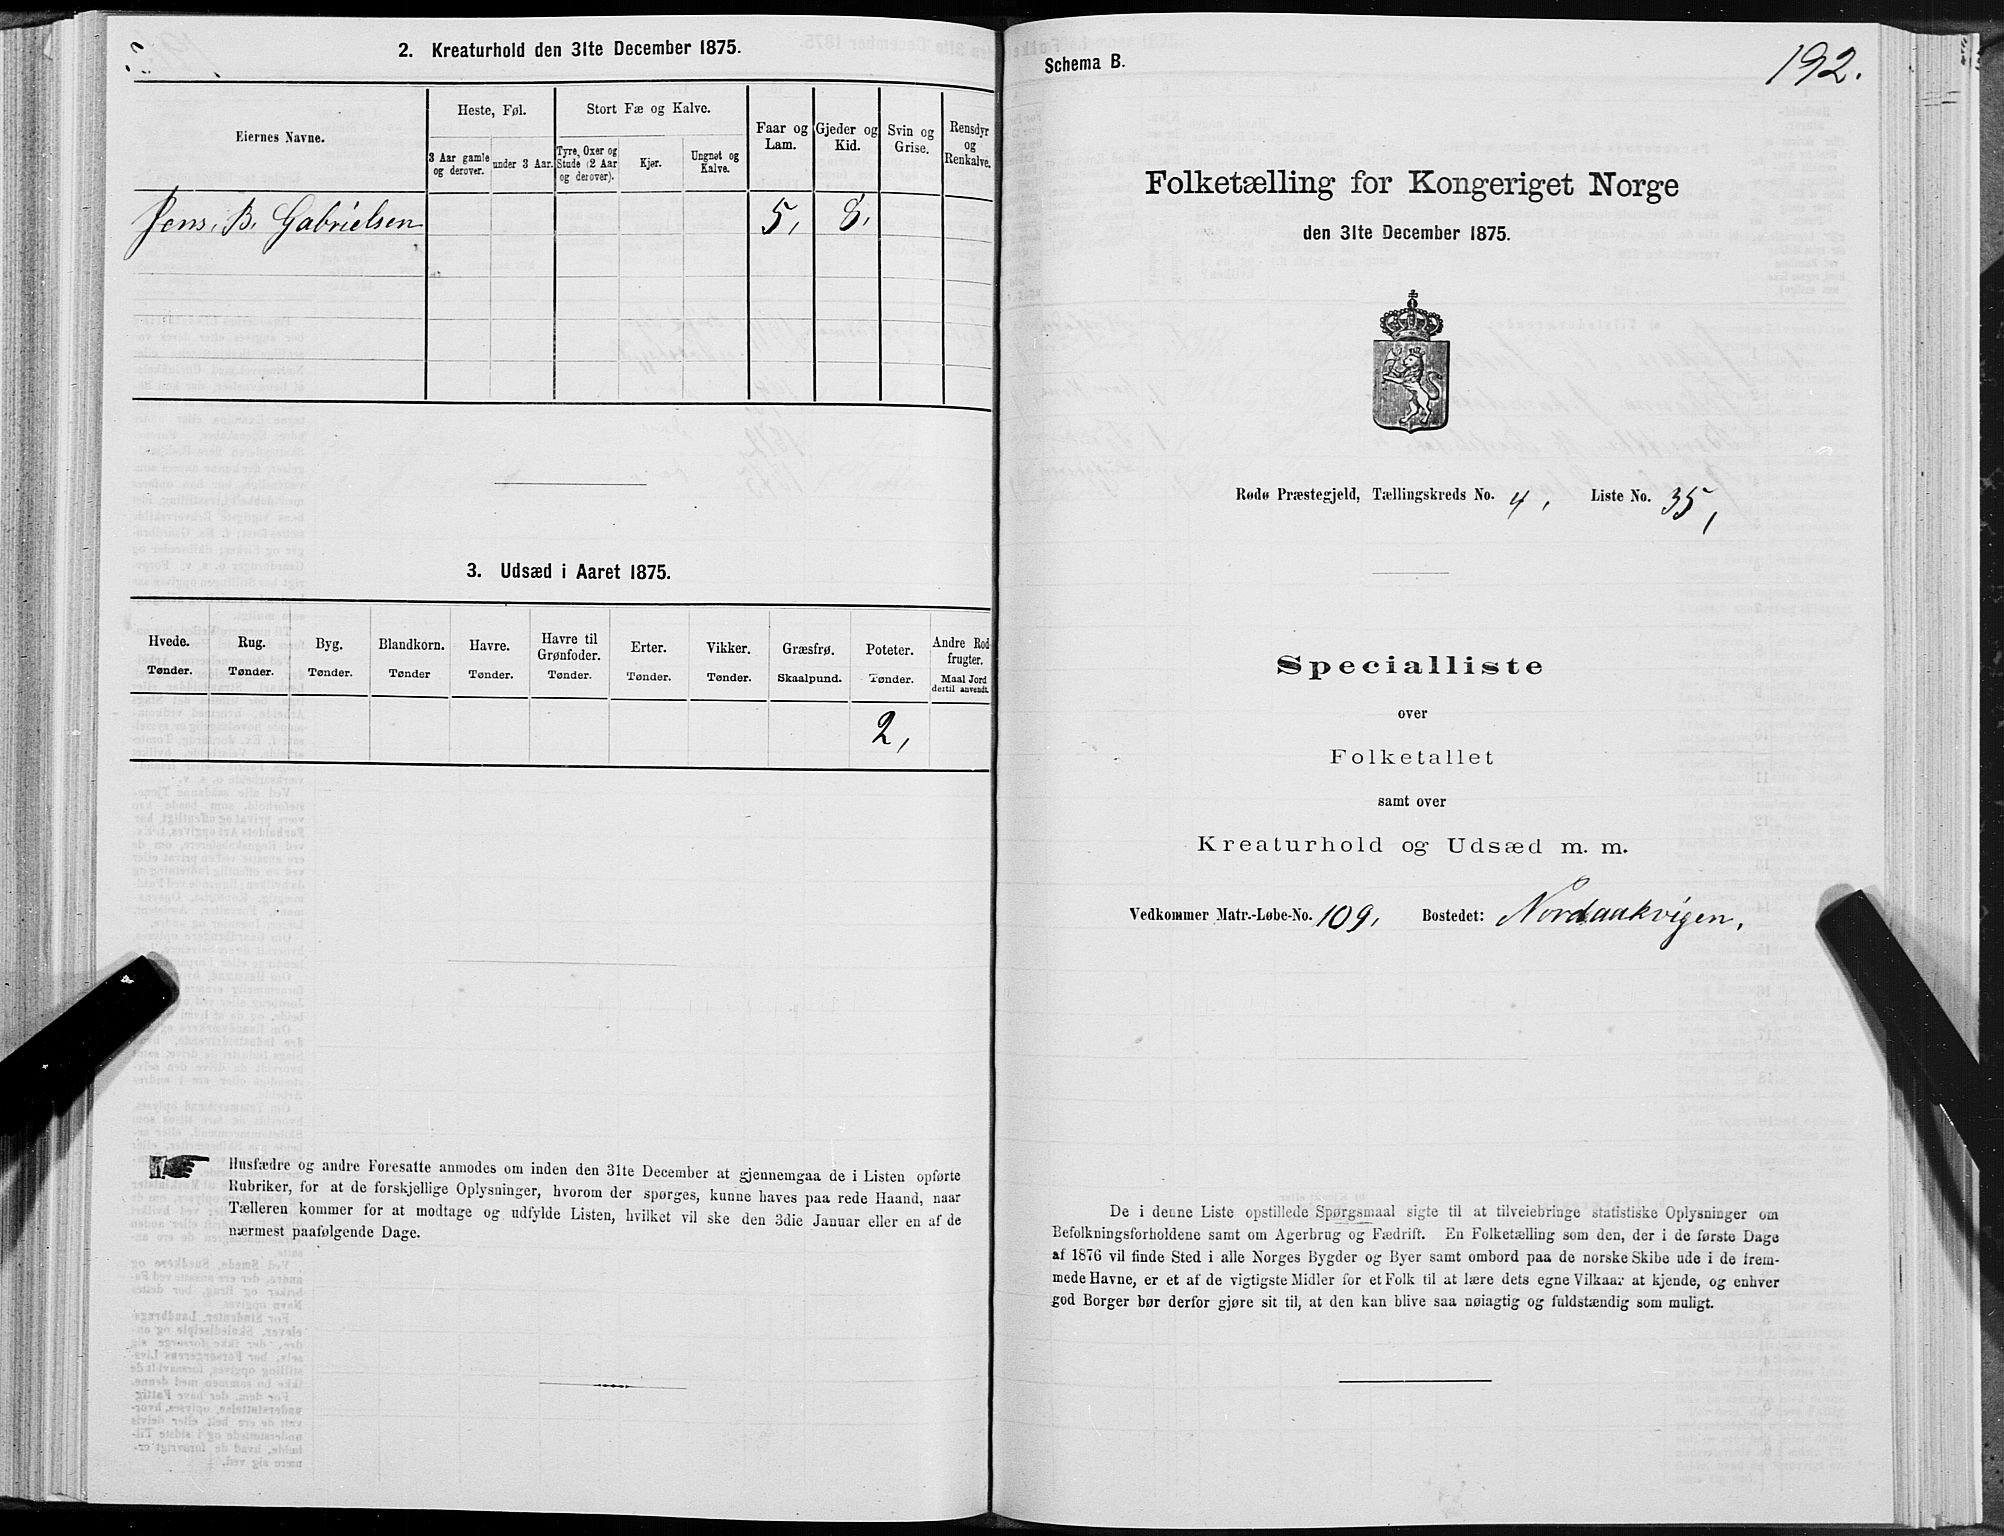 2. Kreaturhold den 31te December 1875.
Eiernes Navne.
Heste, Føl.
Stort Fæ og Kalve.
Faar og Lam.
Gjeder og Kid.
Svin og Grise.
Rensdyr og Renkalve.
3 Aar gamle og derover.
under 3 Aar.
Tyre, Oxer og Stude (2 Aar og derover).
Kjør.
Ungnøt og Kalve.
Jens. B. Gabrielsen 5, 8,
3. Udsæd i Aaret 1875.
Hvede. Rug. Byg. Blandkorn. Havre. Havre til Grønfoder. Erter. Vikker. Græsfrø. Poteter. Andre Rodfrugter.
Tønder. Tønder. Tønder. Tønder Tønder. Tønder. Tønder. Tønder. Skaalpund. Tønder. Maal Jord dertil anvendt.
2,
Husfædre og andre Foresatte anmodes om inden den 31te December at gjennemgaa de i Listen opførte
Rubriker, for at de forskjellige Oplysninger, hvorom der spørges, kunne haves paa rede Haand, naar
Tælleren kommer for at modtage og udfylde Listen, hvilket vil ske den 3die Januar eller en af de
nærmest paafølgende Dage.
Schema B.
192.
Folketælling for Kongeriget Norge
den 31te December 1875.
Rødø Præstegjeld, Tællingskreds No. 4, Liste No. 35,
Specialliste
over
Folketallet
samt over
Kreaturhold og Udsæd m. m.
Vedkommer Matr.-Løbe-No. 109, Bostedet: Nordaakvigen,
De i denne Liste opstillede Spørgsmaal sigte til at tilveiebringe statistiske Oplysninger om
Befolkningsforholdene samt om Agerbrug og Fædrift. En Folketælling som den, der i de første Dage
af 1876 vil finde Sted i alle Norges Bygder og Byer samt ombord paa de norske Skibe ude i de frem-
mede Havne, er et af de vigtigste Midler for et Folk til at lære dets egne Vilkaar at kjende, og enhver
god Borger bør derfor gjøre sit til, at den kan blive saa nøiagtig og fuldstændig som muligt.